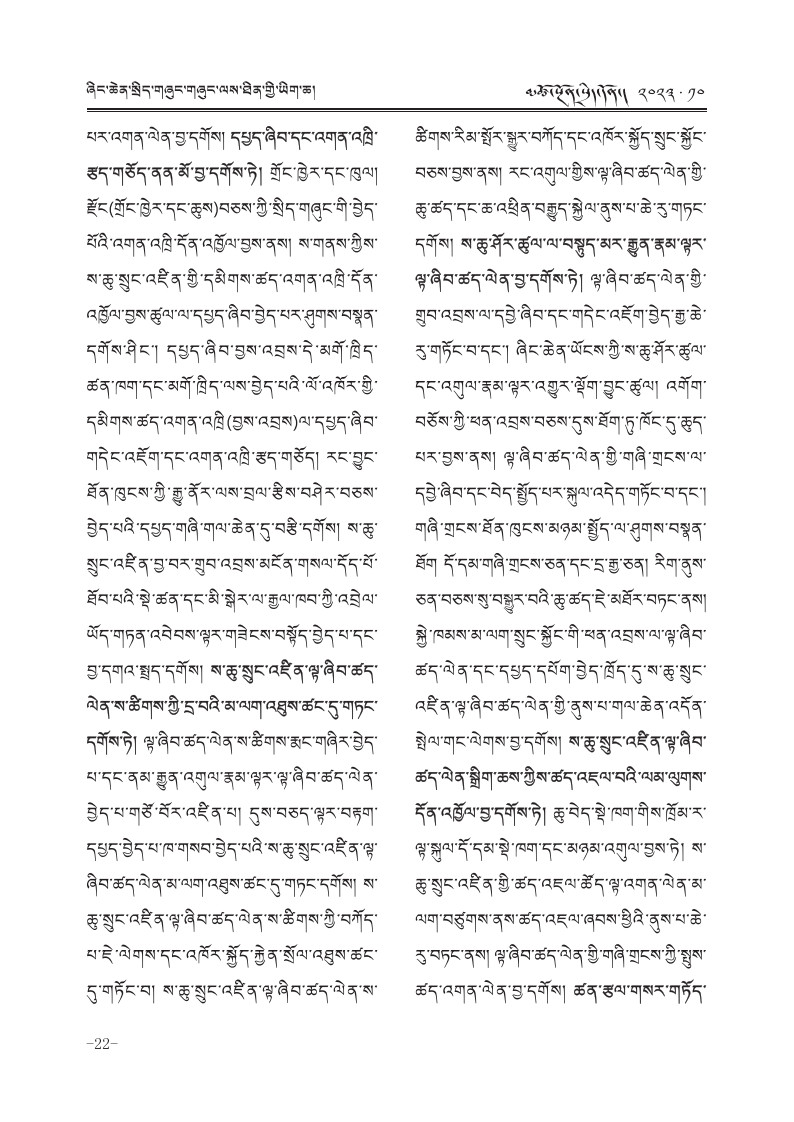 ཞིང་ཆེན་སྲིད་གཞུང་གཞུང་ལས་ཐིན་གྱི་ཡིག་ཆ།
༢༠༢༣ · ༡༠
པར་འགན་ལེན་བྱ་དགོས། དཔྱད་ཞིབ་དང་འགན་འཁྲི་
རྩད་གཅོད་ནན་མོ་བྱ་དགོས་ཏེ། གྲོང་ཁྱེར་དང་ཁུལ།
རྫོང(གྲོང་ཁྱེར་དང་ཆུས)བཅས་ཀྱི་སྲིད་གཞུང་གི་བྱེད་
པོའི་འགན་འཁྲི་དོན་འཁྱོལ་བྱས་ནས། ས་གནས་ཀྱིས་
ས་ཆུ་སྲུང་འཛིན་གྱི་དམིགས་ཚད་འགན་འཁྲི་དོན་
འཁྱོལ་བྱས་ཚུལ་ལ་དཔྱད་ཞིབ་བྱེད་པར་ཤུགས་བསྣན་
དགོས་ཤིང་། དཔྱད་ཞིབ་བྱས་འབྲས་དེ་མགོ་ཁྲིད་
ཚན་ཁག་དང་མགོ་ཁྲིད་ལས་བྱེད་པའི་ལོ་འཁོར་གྱི་
དམིགས་ཚད་འགན་འཁྲི(བྱས་འབྲས)ལ་དཔྱད་ཞིབ་
གདེང་འཇོག་དང་འགན་འཁྲི་རྩད་གཅོད། རང་བྱུང་
ཐོན་ཁུངས་ཀྱི་རྒྱུ་ནོར་ལས་བྲལ་རྩིས་བཤེར་བཅས་
བྱེད་པའི་དཔྱད་གཞི་གལ་ཆེན་དུ་བརྩི་དགོས། ས་ཆུ་
སྲུང་འཛིན་བྱ་བར་གྲུབ་འབྲས་མངོན་གསལ་དོད་པོ་
ཐོབ་པའི་སྡེ་ཚན་དང་མི་སྒེར་ལ་རྒྱལ་ཁབ་ཀྱི་འབྲེལ་
ཡོད་གཏན་འབེབས་ལྟར་གཟེངས་བསྟོད་བྱེད་པ་དང་
བྱ་དགའ་སྤྲད་དགོས། ས་ཆུ་སྲུང་འཛིན་ལྟ་ཞིབ་ཚད་
ལེན་ས་ཚིགས་ཀྱི་དྲ་བའི་མ་ལག་འཐུས་ཚང་དུ་གཏང་
དགོས་ཏེ། ལྟ་ཞིབ་ཚད་ལེན་ས་ཚིགས་རྨང་གཞིར་བྱེད་
པ་དང་ནམ་རྒྱུན་འགུལ་རྣམ་ལྟར་ལྟ་ཞིབ་ཚད་ལེན་
བྱེད་པ་གཙོ་བོར་འཛིན་པ། དུས་བཅད་ལྟར་བརྟག་
དཔྱད་བྱེད་པ་ཁ་གསབ་བྱེད་པའི་ས་ཆུ་སྲུང་འཛིན་ལྟ་
ཞིབ་ཚད་ལེན་མ་ལག་འཐུས་ཚང་དུ་གཏང་དགོས། ས་
ཆུ་སྲུང་འཛིན་ལྟ་ཞིབ་ཚད་ལེན་ས་ཚིགས་ཀྱི་བཀོད་
པ་ཇེ་ལེགས་དང་འཁོར་སྐྱོད་རྐྱེན་སྲོལ་འཐུས་ཚང་
དུ་གཏོང་བ། ས་ཆུ་སྲུང་འཛིན་ལྟ་ཞིབ་ཚད་ལེན་ས་
ཚིགས་རིམ་སྤོར་སྒྱུར་བཀོད་དང་འཁོར་སྐྱོད་སྲུང་སྐྱོང་
བཅས་བྱས་ནས། རང་འགུལ་གྱིས་ལྟ་ཞིབ་ཚད་ལེན་གྱི་
ཆུ་ཚད་དང་ཆ་འཕྲིན་བརྒྱུད་སྐྱེལ་ནུས་པ་ཆེ་རུ་གཏང་
དགོས། ས་ཆུ་ཤོར་ཚུལ་ལ་བསྟུད་མར་རྒྱུན་རྣམ་ལྟར་
ལྟ་ཞིབ་ཚད་ལེན་བྱ་དགོས་ཏེ། ལྟ་ཞིབ་ཚད་ལེན་གྱི་
གྲུབ་འབྲས་ལ་དབྱེ་ཞིབ་དང་གདེང་འཇོག་བྱེད་རྒྱ་ཆེ་
རུ་གཏོང་བ་དང་། ཞིང་ཆེན་ཡོངས་ཀྱི་ས་ཆུ་ཤོར་ཚུལ་
དང་འགུལ་རྣམ་ལྟར་འགྱུར་ལྡོག་བྱུང་ཚུལ། འགོག་
བཅོས་ཀྱི་ཕན་འབྲས་བཅས་དུས་ཐོག་ཏུ་ཁོང་དུ་ཆུད་
པར་བྱས་ནས། ལྟ་ཞིབ་ཚད་ལེན་གྱི་གཞི་གྲངས་ལ་
དབྱེ་ཞིབ་དང་བེད་སྤྱོད་པར་སྐུལ་འདེད་གཏོང་བ་དང་།
གཞི་གྲངས་ཐོན་ཁུངས་མཉམ་སྤྱོད་ལ་ཤུགས་བསྣན་
ཐོག དོ་དམ་གཞི་གྲངས་ཅན་དང་དྲ་རྒྱ་ཅན། རིག་ནུས་
ཅན་བཅས་སུ་བསྒྱུར་བའི་ཆུ་ཚད་ཇེ་མཐོར་བཏང་ནས།
སྐྱེ་ཁམས་མ་ལག་སྲུང་སྐྱོང་གི་ཕན་འབྲས་ལ་ལྟ་ཞིབ་
ཚད་ལེན་དང་དཔྱད་དཔོག་བྱེད་ཁྲོད་དུ་ས་ཆུ་སྲུང་
འཛིན་ལྟ་ཞིབ་ཚད་ལེན་གྱི་ནུས་པ་གལ་ཆེན་འདོན་
སྤེལ་གང་ལེགས་བྱ་དགོས། ས་ཆུ་སྲུང་འཛིན་ལྟ་ཞིབ་
ཚད་ལེན་སྒྲིག་ཆས་ཀྱིས་ཚད་འཇལ་བའི་ལམ་ལུགས་
དོན་འཁྱོལ་བྱ་དགོས་ཏེ། ཆུ་བེད་སྡེ་ཁག་གིས་ཁྲོམ་ར་
ལྟ་སྐུལ་དོ་དམ་སྡེ་ཁག་དང་མཉམ་འགུལ་བྱས་ཏེ། ས་
ཆུ་སྲུང་འཛིན་གྱི་ཚད་འཇལ་ཚོད་ལྟ་འགན་ལེན་མ་
ལག་བཙུགས་ནས་ཚད་འཇལ་ཞབས་ཕྱིའི་ནུས་པ་ཆེ་
རུ་བཏང་ནས། ལྟ་ཞིབ་ཚད་ལེན་གྱི་གཞི་གྲངས་ཀྱི་སྤུས་
ཚད་འགན་ལེན་བྱ་དགོས། ཚན་རྩལ་གསར་གཏོད་
–22–